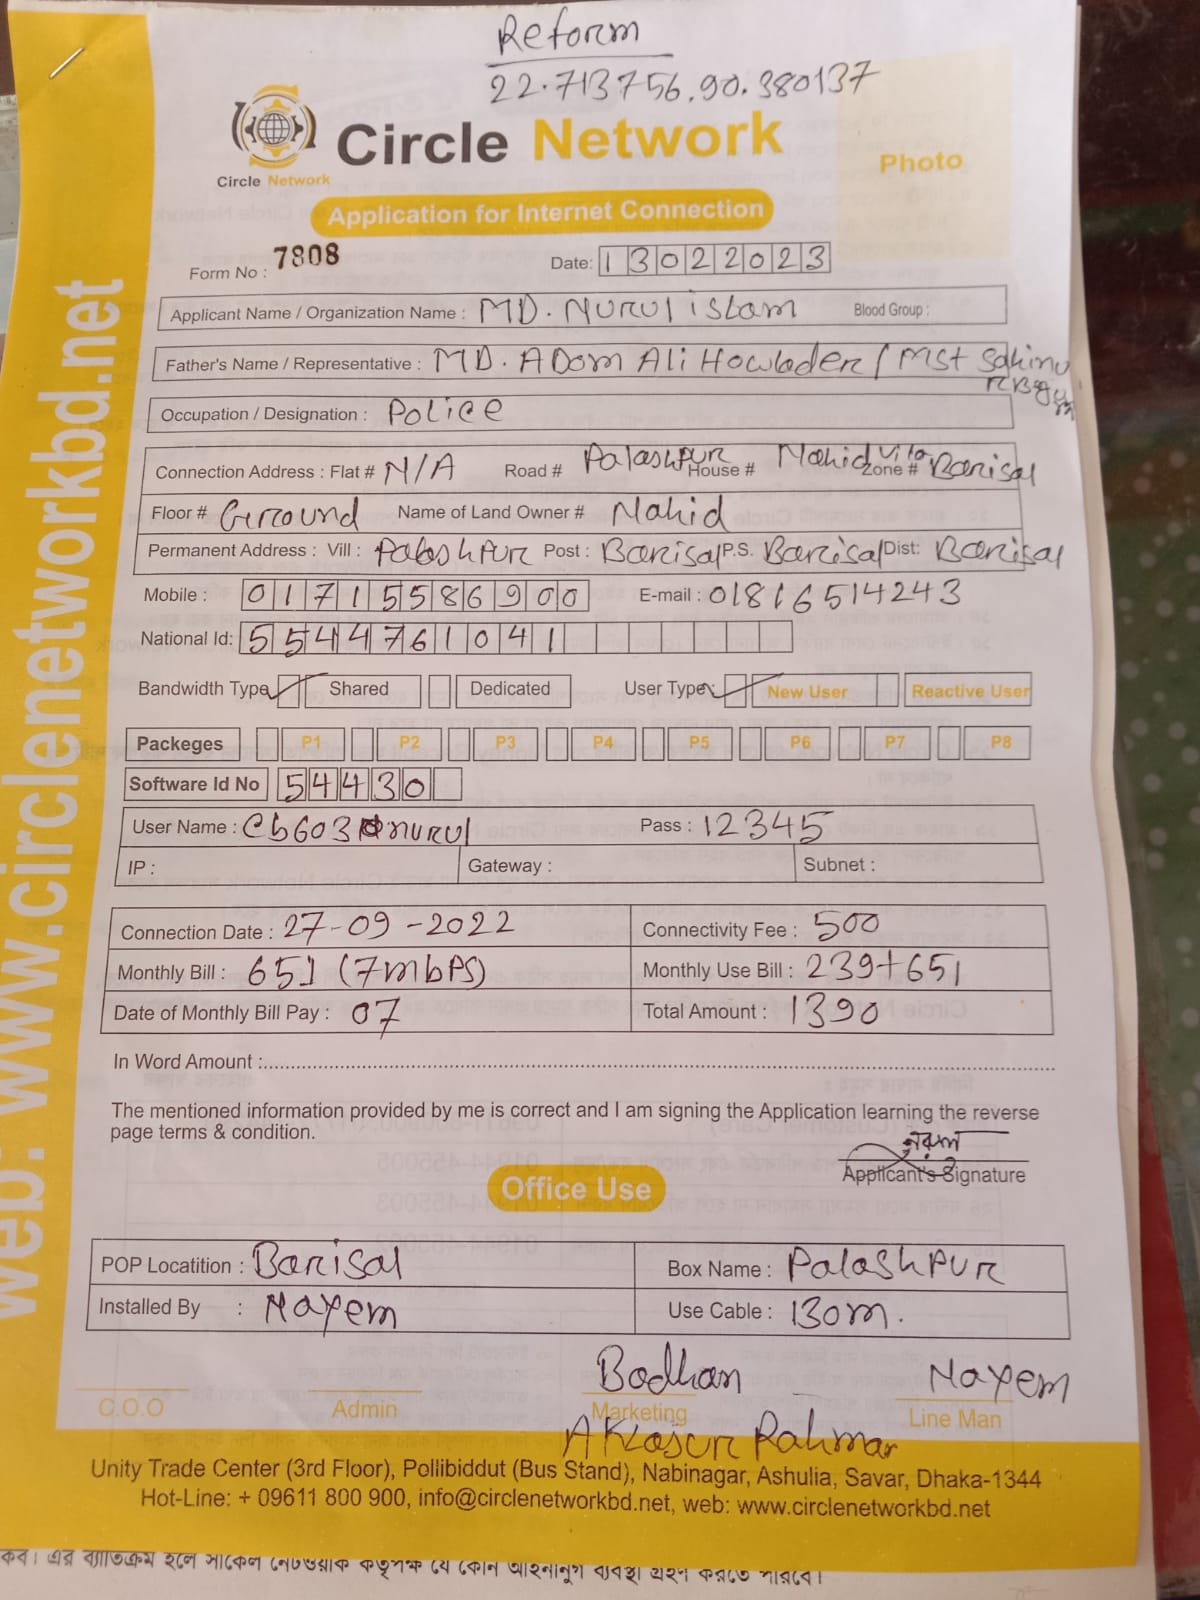 Reform
22.713756.90.380137
Circle Network
Circle Network
Photo
Application for Internet Connection
Form No : 7808
Date: 13022023
Applicant Name / Organization Name : MD. Nurul islam Blood Group :
Father's Name / Representative : MD. ADom Ali Howlader / Mst
Occupation / Designation : Police
Connection Address : Flat # N/A Road # Palashpur House # Nahid Villa Zone # Barisal
Floor # Ground Name of Land Owner # Nahid
Permanent Address : Vill : Palashpur Post : Barisal P.S. Barisal Dist: Barisal
Mobile : 01715586900 E-mail : 01816514243
National Id: 5544761041
Bandwidth Type Shared Dedicated User Type: New User Reactive User
Packeges P1 P2 P3 P4 P5 P6 P7 P8
Software Id No 54430
User Name : Pass : 12345
IP : Gateway : Subnet :
Connection Date : 27-09-2022 Connectivity Fee : 500
Monthly Bill : 651 (7mbPS) Monthly Use Bill : 239+651
Date of Monthly Bill Pay : 07 Total Amount : 1390
In Word Amount :
The mentioned information provided by me is correct and I am signing the Application learning the reverse
page terms & condition.
নুরুল
Applicant's Signature
Office Use
POP Locatition : Barisal Box Name : Palashpur
Installed By : Nayem Use Cable : 130m.
Bodhan Nayem
C.O.O Admin Marketing Line Man
Rahman
Unity Trade Center (3rd Floor), Pollibiddut (Bus Stand), Nabinagar, Ashulia, Savar, Dhaka-1344
Hot-Line: + 09611 800 900, info@circlenetworkbd.net, web: www.circlenetworkbd.net
web: www.circlenetworkbd.net
এর ব্যাতিক্রম হলে সার্কেল নেটওয়ার্ক কর্তৃপক্ষ যে কোন আইনানুগ ব্যবস্থা গ্রহণ করতে পারবে।